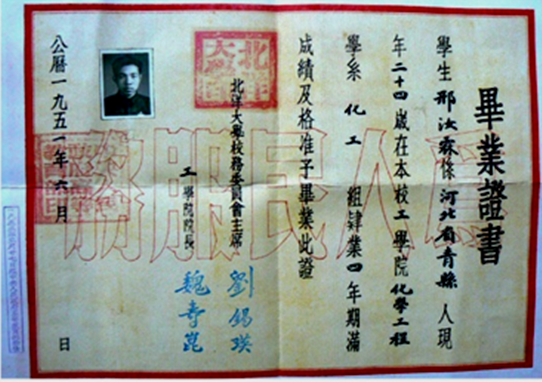 畢業證書
學生邢汝霖係河北省青縣人現
年二十四歲在本校工學院化學工程
學系化工組肄業四年期滿
成績及格准予畢業此證
北洋大學校務委員會主席
劉錫瑛
工學院院長
魏壽崑
公曆一九五一年六月 日
爲人民服務